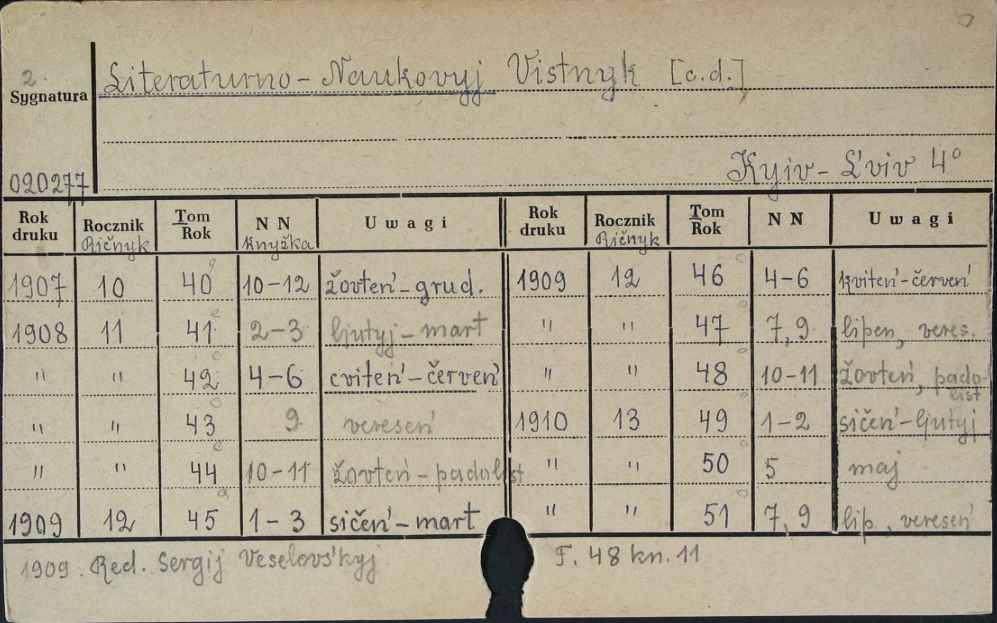 2.
Literaturno-Naukovyj Vistnyk [c.d.]
Sygnatura
Kyjiv-L'viv 4°
020277
Rok druku Rocznik Ričnyk Tom Rok N N Knyžka Uwagi Rok druku Rocznik Ričnyk Tom Rok N N Uwagi
1907 10 40 10-12 žovteń-grud. 1909 12 46 4-6 kviteń-červeń
1908 11 41 2-3 ljutyj-mart " " 47 7,9 lipen, veres.
" " 42 4-6 cviteń-červeń " " 48 10-11 žovteń, padolist
" " 43 9 vereseń 1910 13 49 1-2 sičeń-ljutyj
" " 44 10-11 žovteń-padolist " " 50 5 maj
1909 12 45 1-3 sičeń-mart " " 51 7,9 lip, vereseń
1909. Red. Sergij Veselovs'kyj T. 48 kn. 11